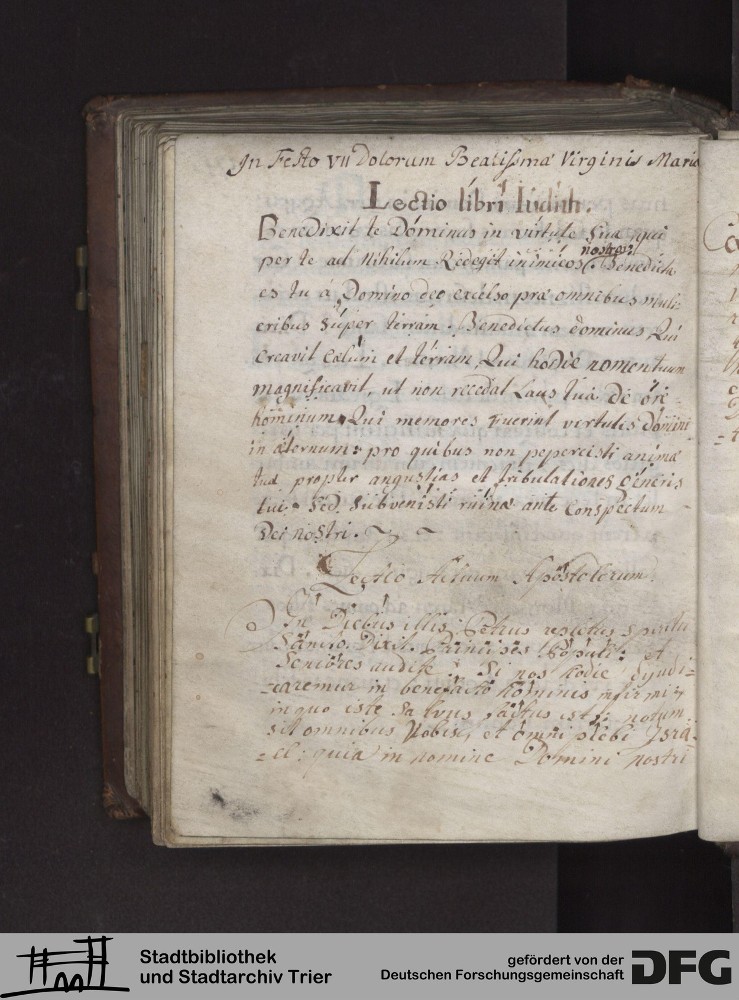 In Festo VII Dolorum Beatissimæ Virginis Mariæ
Lectio libri Iudith.
Benedixit te Dóminus in virtute sua, qui
per te ad Nihilum Redegit inimicos nostros. Benedicta
es tu á Domino deo excelso præ omnibus muli-
eribus súper terram. Benedictus dominus Qui
Creavit cælum et térram, Qui hodie nomen tuum
magnificavit, ut non recedat Laus tua de óre-
hominum, Qui memores Fuerint virtutis dómini
in æternum: pro quibus non pepercisti animæ
tuæ propter angustias et tribulationes Géneris
tui: Sed Subvenisti ruinæ ante Conspectum
Dei nostri.
Lectio Actuum Apostolorum.
In Diebus illis, Petrus repletus spiritu
Sancto, Dixit. Principes Populi: et
Seniores audite: Si nos hodie dijudi-
-caremur in benefacto hominis infirmi,
in quo iste Salvus factus est: notum
sit omnibus Vobis, et omni plebi Isra-
-el: quia in nomine Domini nostri
Stadtbibliothek
und Stadtarchiv Trier
gefördert von der
Deutschen Forschungsgemeinschaft
DFG